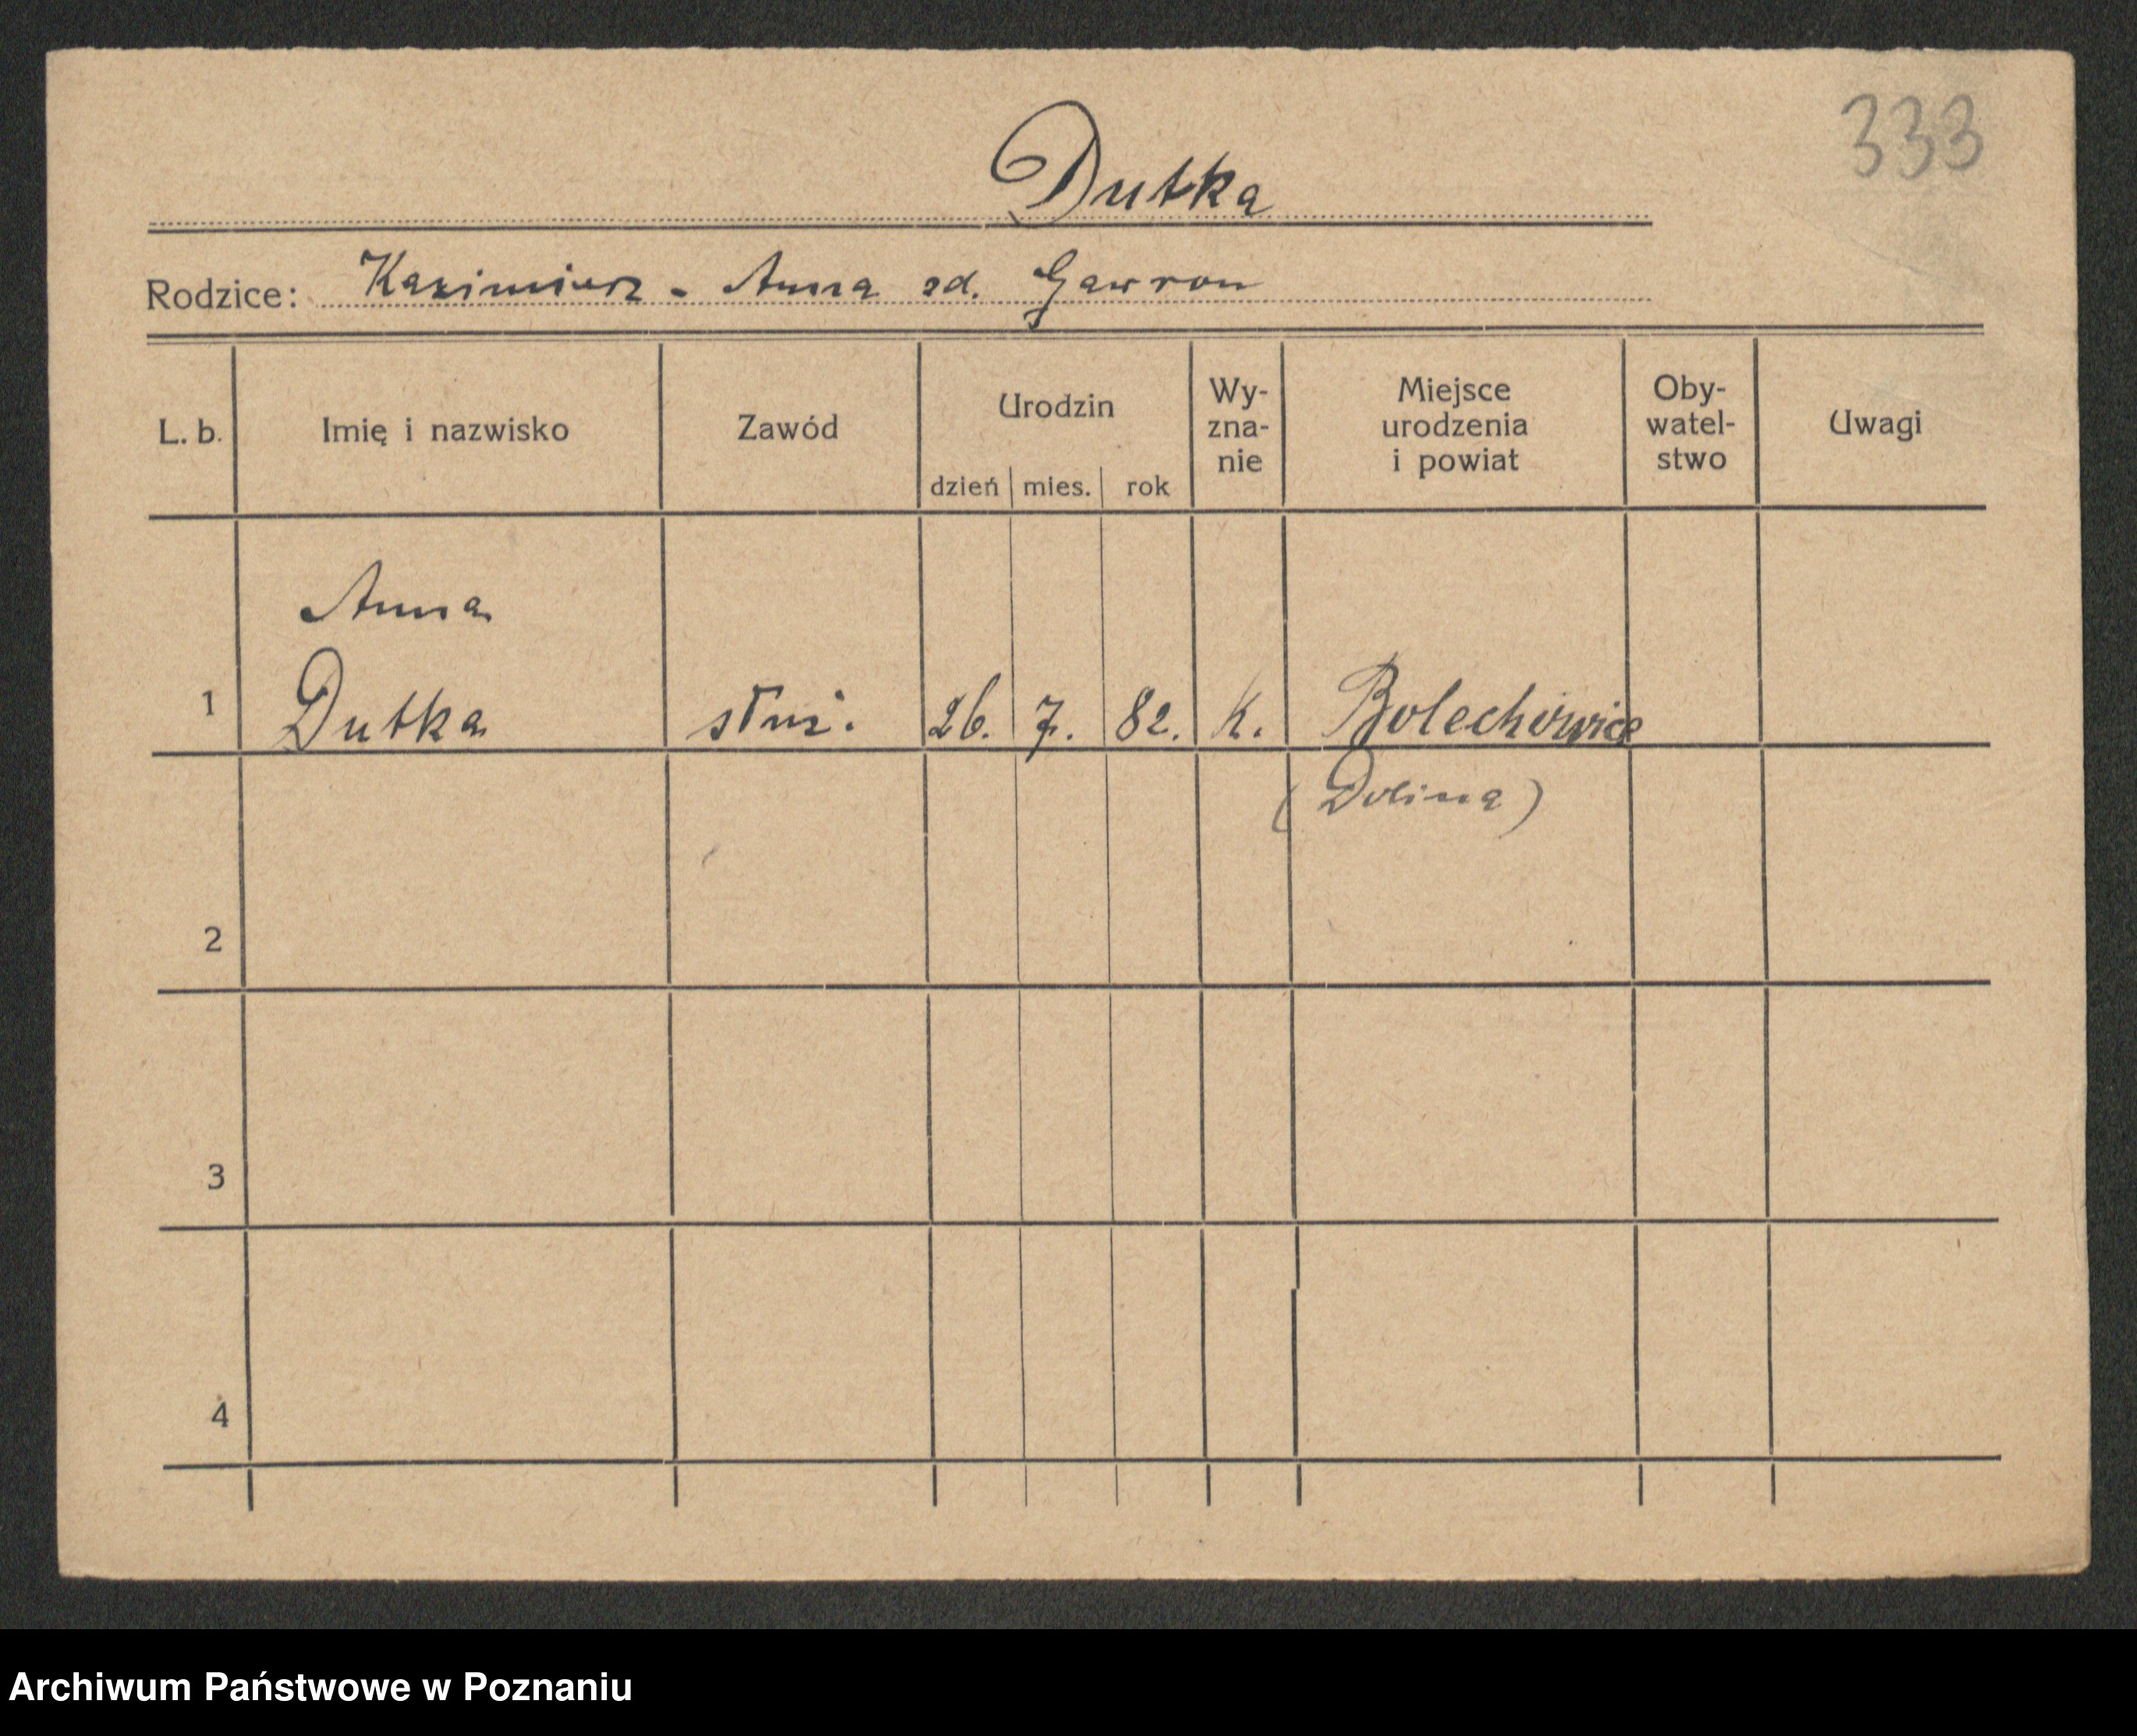 333
Dutka
Rodzice: Kazimierz - Anna zd. Gawron
L. b. Imię i nazwisko Zawód Urodzin dzień mies. rok Wy-zna-nie Miejsce urodzenia i powiat Oby-watel-stwo Uwagi
Anna
1 Dutka służ. 26. 7. 82. k. Bolechowice
(Dolina)
2
3
4
Archiwum Państwowe w Poznaniu